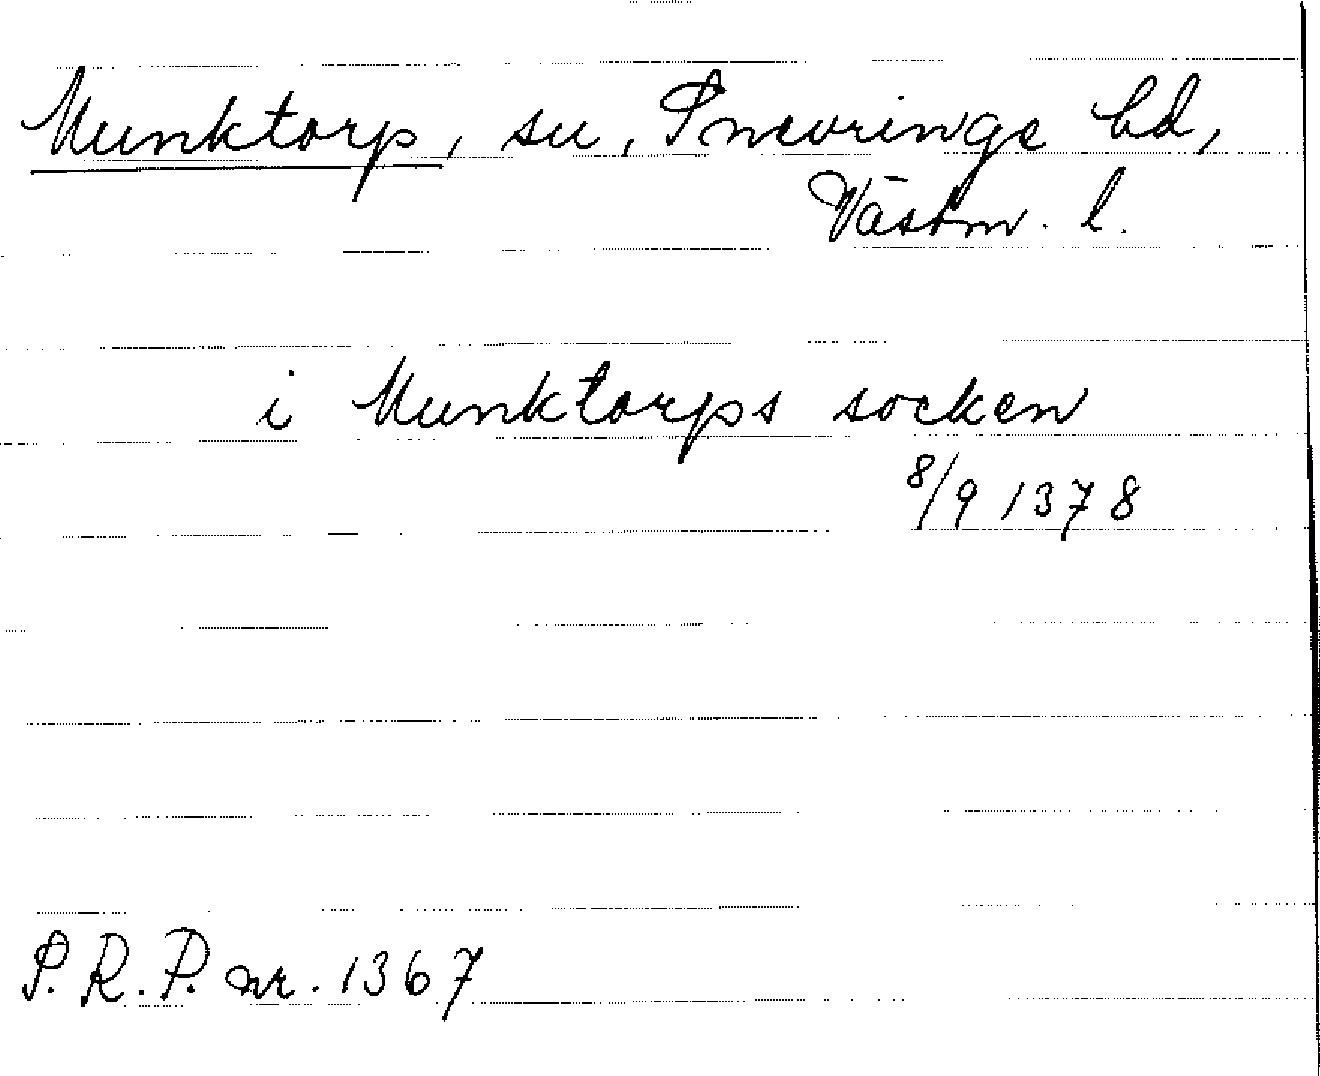 Munktorp, sn, Snevringe hd,
Västm. l.
i Munktorps socken
8/9 1378
S.R.P. nr. 1367